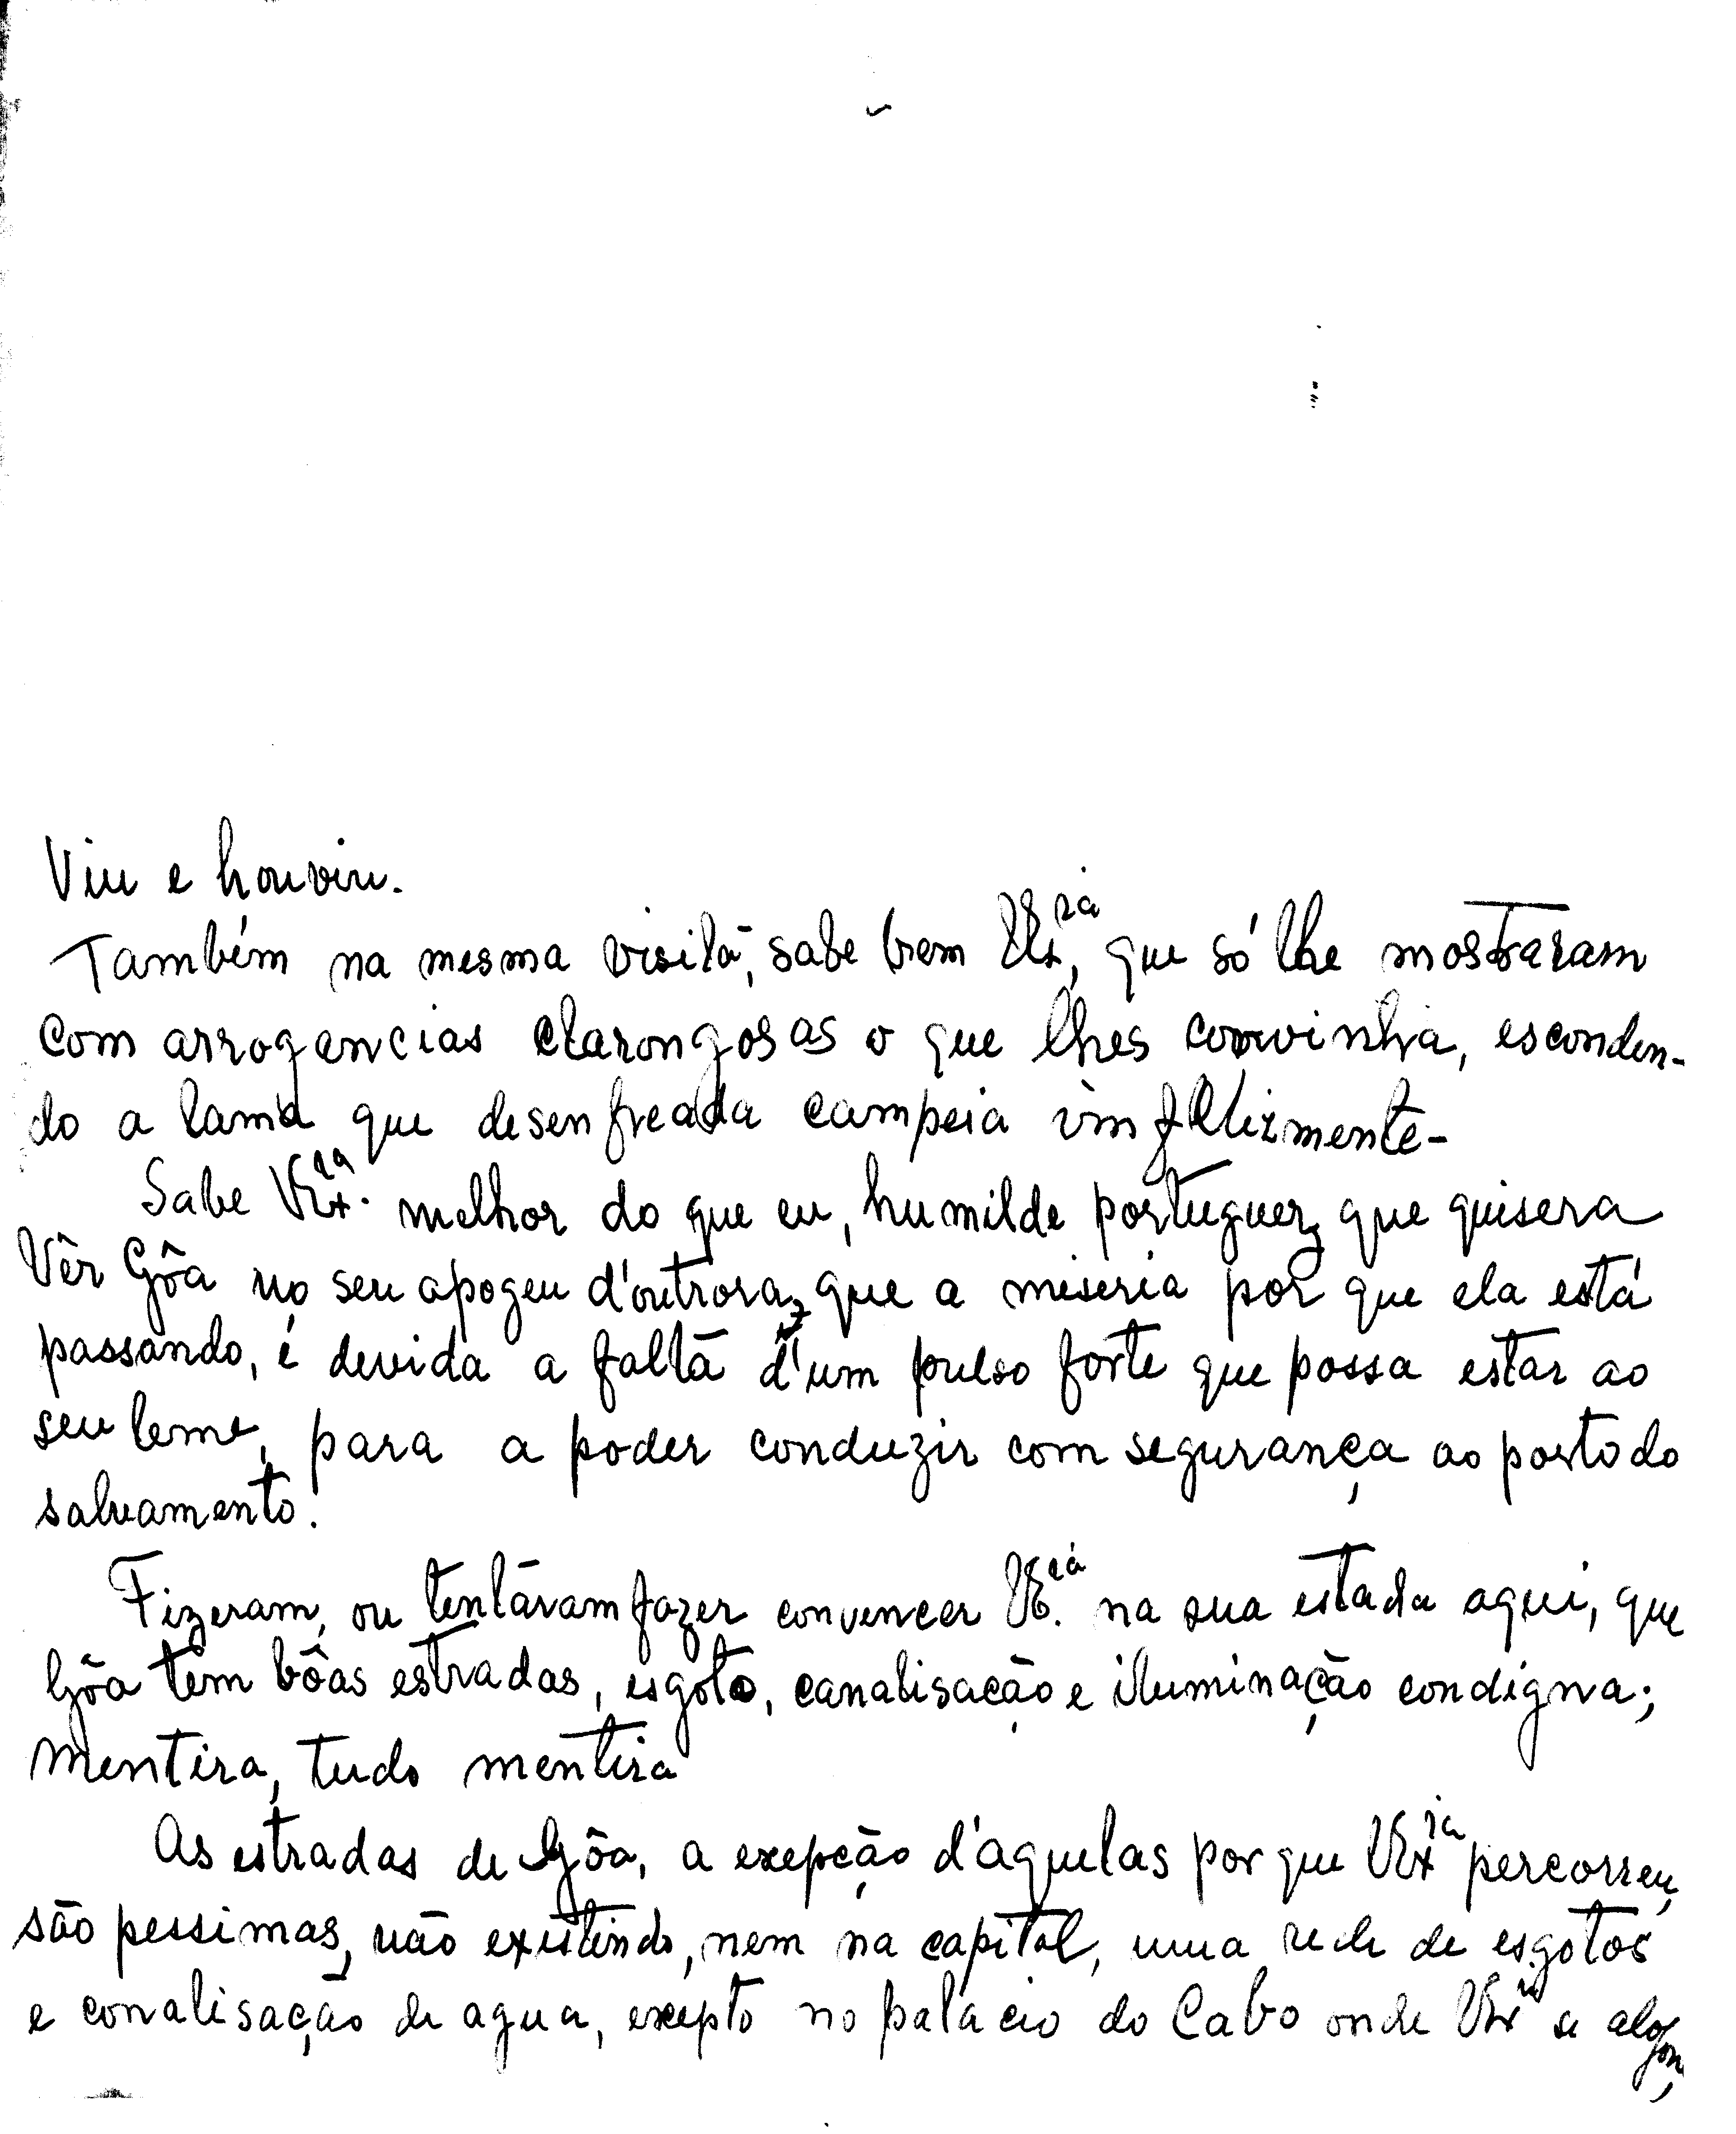 Viu e houviu.
Também na mesma visita, sabe bem VEx.ia, que só lhe mostraram
com arrogancias clarongosas o que lhes convinha, esconden-
do a lama que desenfreada campeia imfelizmente-
Sabe VEx.ia melhor do que eu, humilde portuguez, que quisera
Vêr Gôa no seu apogeu d'outrora, que a miseria por que ela está
passando, é devida a falta d'um pulso forte que possa estar ao
seu leme, para a poder conduzir com segurança ao porto do
salvamento.
Fizeram, ou tentáram fazer convencer VE.cia na sua estada aqui, que
Gôa tem bôas estradas, esgoto, canalisação e iluminação condigna;
mentira, tudo mentira
As estradas de Gôa, a exepção d'aquelas por que VEx.ia percorreu,
são pessimas, não existindo, nem na capital, uma rede de esgotos
e canalisação de agua, exepto no palacio do Cabo onde VEx.ia se alojou,